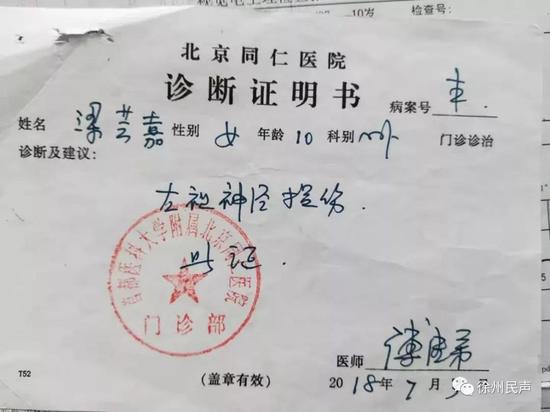 10岁 检查号:
北京同仁医院
诊断证明书
病案号
姓名 梁芸嘉 性别 女 年龄 10 科别 门诊诊治
诊断及建议:
左视神经损伤.
此证.
首都医科大学附属北京同仁医院
门诊部
医师
T52
(盖章有效)
2018年7月 日
@徐州民声